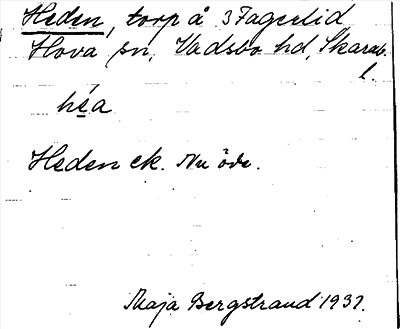 Heden, torp å 3 Fagerlid
Hova sn, Vadsbo hd, Skarab.
l.
hé̠a
Heden ek. Nu öde.
Maja Bergstrand 1937.